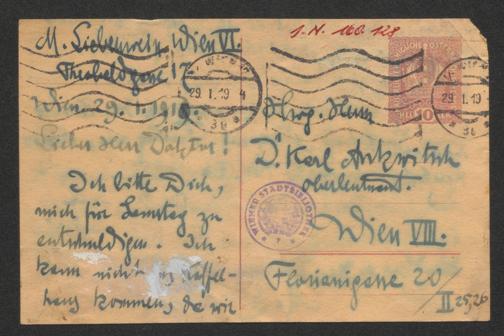 I.N. 160.128
M. Liebenwein, Wien VI.
Theobaldgasse 17
Wien 29.1.1919.
Lieber Herr Doktor!
Ich bitte Dich,
mich für Samstag zu
entschuldigen. Ich
kann nicht ins Kaffee-
haus kommen, da wir
WIEN
29.I.19 4
WIEN
29.I.19
10
S. Hwg. Herrn
D. Karl Ankwitsch
Oberleutnant.
Wien VIII.
Florianigasse 20/
II 25,26
WIENER STADTBIBLIOTHEK